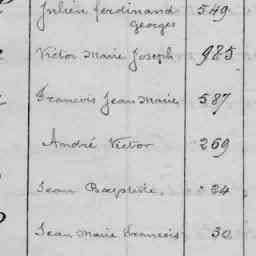 Julien Ferdinand 549
Georges
Victor Marie Joseph 985
Francois Jean Marie 587
André Victor 269
Jean Baptiste. 24
Jean Marie Francois 32